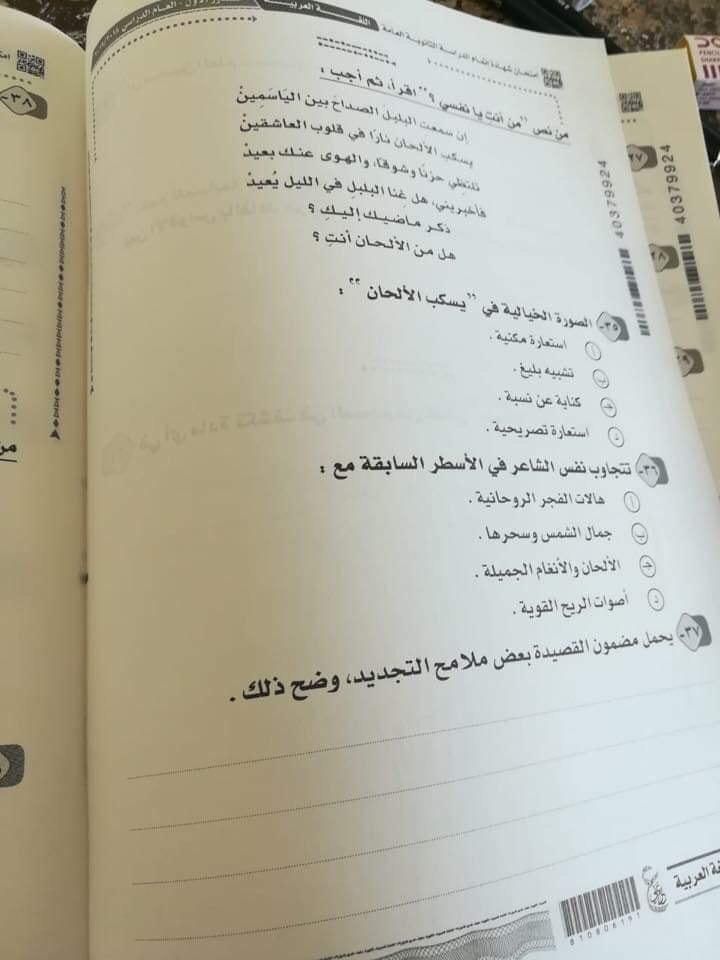 امتحان شهادة إتمام الدراسة الثانوية العامة
اللغة العربية
الدور الأول - العام الدراسي
من نص "من أنتِ يا نفسي ؟" اقرأ، ثم أجب :
إن سمعتِ البلبلَ الصداحَ بين اليَاسَمِينْ
يسكب الألحان نارًا في قلوب العاشقينْ
تلتظي حزنًا وشوقًا، والهوى عنك بعيدْ
فأخبريني، هل غِنا البلبلِ في الليل يُعيدْ
ذكر ماضيك إليكِ ؟
هل من الألحان أنتِ ؟
٣٥- الصورة الخيالية في "يسكب الألحان" :
أ استعارة مكنية .
ب تشبيه بليغ .
ج كناية عن نسبة .
د استعارة تصريحية .
٣٦- تتجاوب نفس الشاعر في الأسطر السابقة مع :
أ هالات الفجر الروحانية .
ب جمال الشمس وسحرها .
ج الألحان والأنغام الجميلة .
د أصوات الريح القوية .
٣٧- يحمل مضمون القصيدة بعض ملامح التجديد، وضح ذلك .
40379924
40379924
٣٨-
٢٧
٢٨
من
810806191